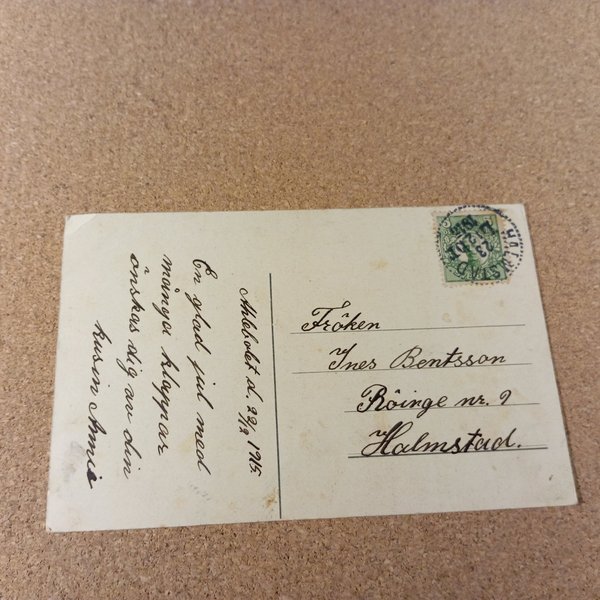 Ahlebolet d. 22/12 1915.
En glad jul med
många klappar
önskas dig av din
kusin Annie
Fröken
Ines Bentsson
Röinge nr. 9
Halmstad.
23